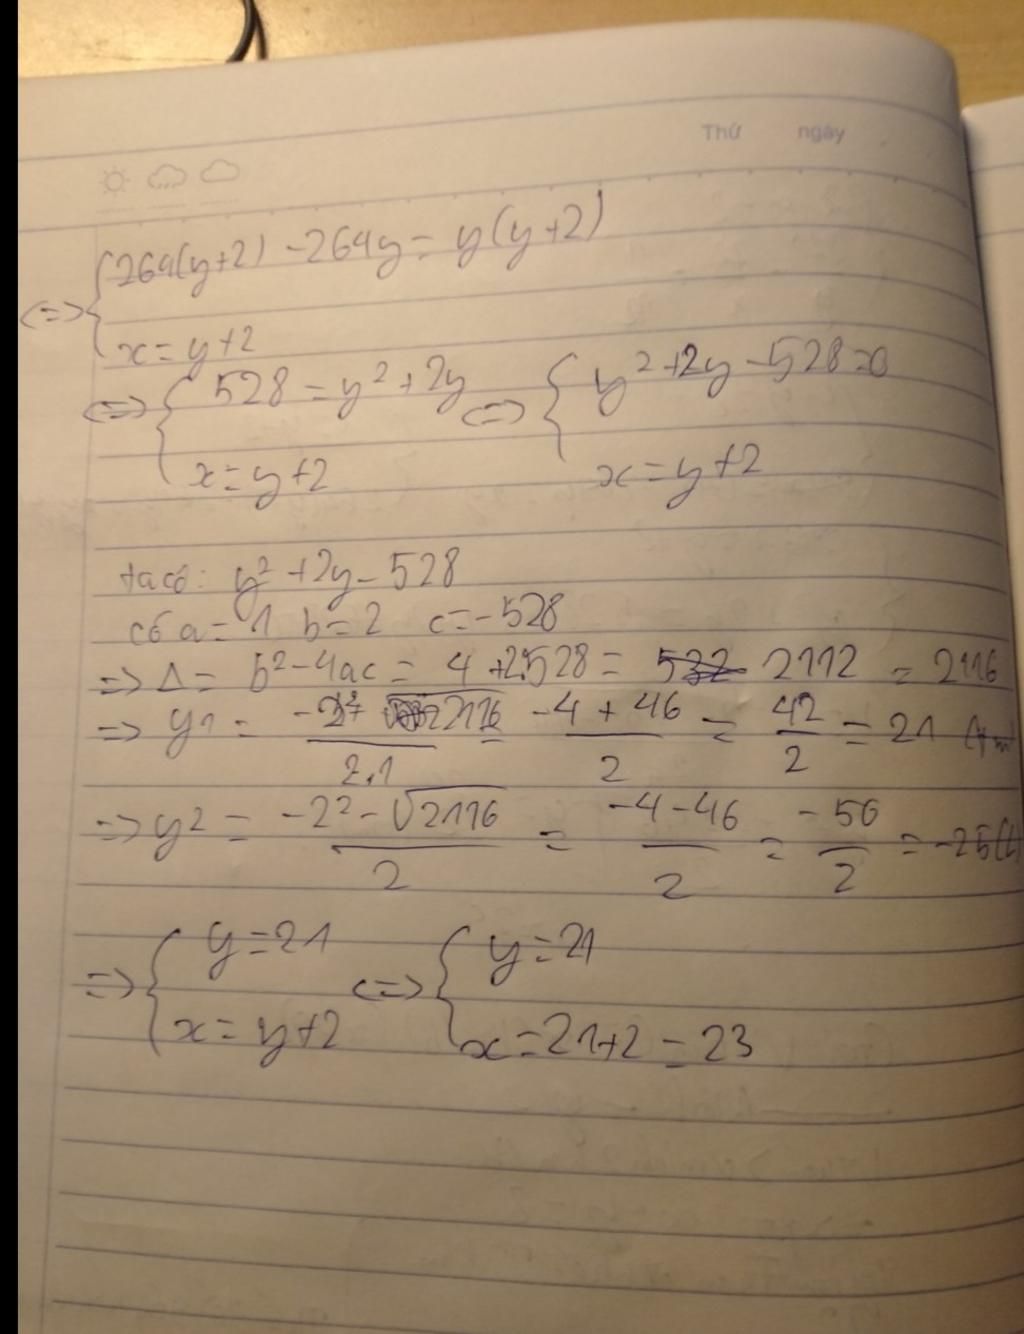 Thứ ngày
<=> { 264(y+2) - 264y = y(y+2)
x = y+2
<=> { 528 = y² + 2y <=> { y² + 2y - 528 = 0
x = y+2 x = y+2
ta có: y² + 2y - 528
có a = 1 b = 2 c = -528
=> Δ = b² - 4ac = 4 + 2.528 = 2112 = 2116
=> y1 = -2² 2116 / 2.1 = -4 + 46 / 2 = 42 / 2 = 21
=> y2 = -2² - √2116 / 2 = -4 - 46 / 2 = -50 / 2 = -25 (L)
=> { y = 21 <=> { y = 21
x = y+2 x = 21+2 = 23